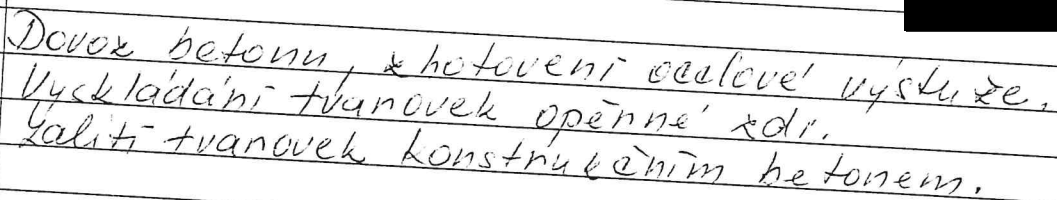 Dovoz betonu, zhotovení ocelové výstuže.
Vyskládání tvanovek opěrné zdi.
Zalití tvanovek konstrukčním betonem.